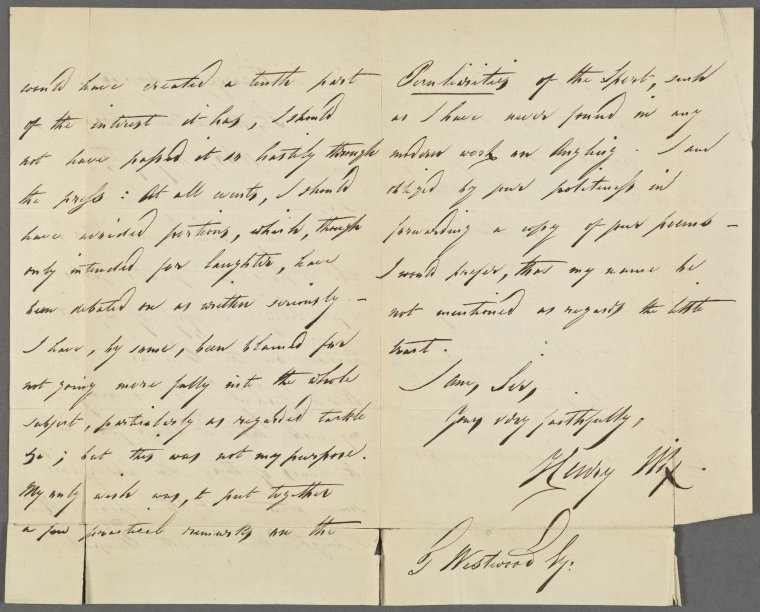 would have created a tenth part
of the interest it has, I should
not have passed it so hastily through
the press: At all events, I should
have avoided portions, which, though
only intended for laughter, have
been debated on as written seriously –
I have, by some, been blamed for
not going more fully into the whole
subject, particularly as regarded tackle
&c; but this was not my purpose.
My only wish was, to put together
a few practical remarks on the
Peculiarities of the Sport, such
as I have never found in any
modern work on Angling. I am
obliged by your politeness in
forwarding a copy of your poems –
I would prefer, that my name be
not mentioned as regards the little
tract.
I am, Sir,
Yours very faithfully,
Henry
G Westwood Esq: